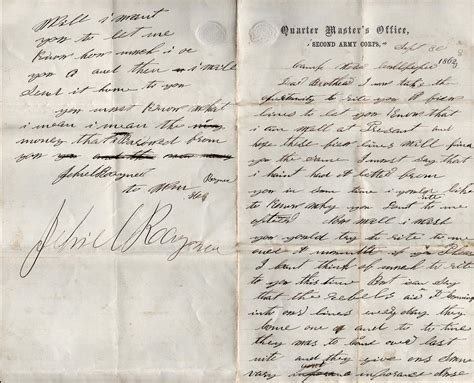 Quarter Master's Office,
SECOND ARMY CORPS,
Sept 30
Camp near Culpeper 1863
Dear Brother I now take the
opportunity to rite you A fiew
lines to let you Know that
i am well at Presant and
hope these fiew lines will find
you the same I must say that
i haint had A letter from
you in some time i would like
to Know why you dont rite to me
oftener Now Will i wish
you would try to rite to me
once A month if you Please
I cant think of much to rite
to you this time But i can say
that the rebels is comeing
into our lines evry day they
come one and to to time
they was to come over last
nite and they give ous some
vary good
Will i want
you to let me
Know how much i oe
you and then i will
send it home to you
you must Know what
i mean i mean the
money that i borrowed from
you
Jehiel Raynor
to Wm Raynor
Jehiel C Raynor